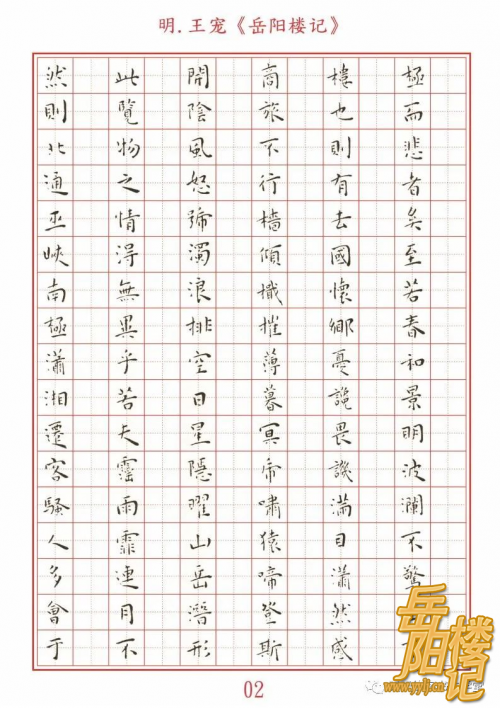 明.王宠《岳阳楼记》
然則北通巫峽南極瀟湘遷客騷人多會于
此覽物之情得無異乎若夫霪雨霏連月不
開陰風怒號濁浪排空日星隱曜山岳潛形
商旅不行檣傾檝摧薄暮冥乕嘯猿啼登斯
樓也則有去國懷鄉憂讒畏譏滿目瀟然感
極而悲者矣至若春和景明波瀾不驚
岳阳楼记
www.yylj.cn
02